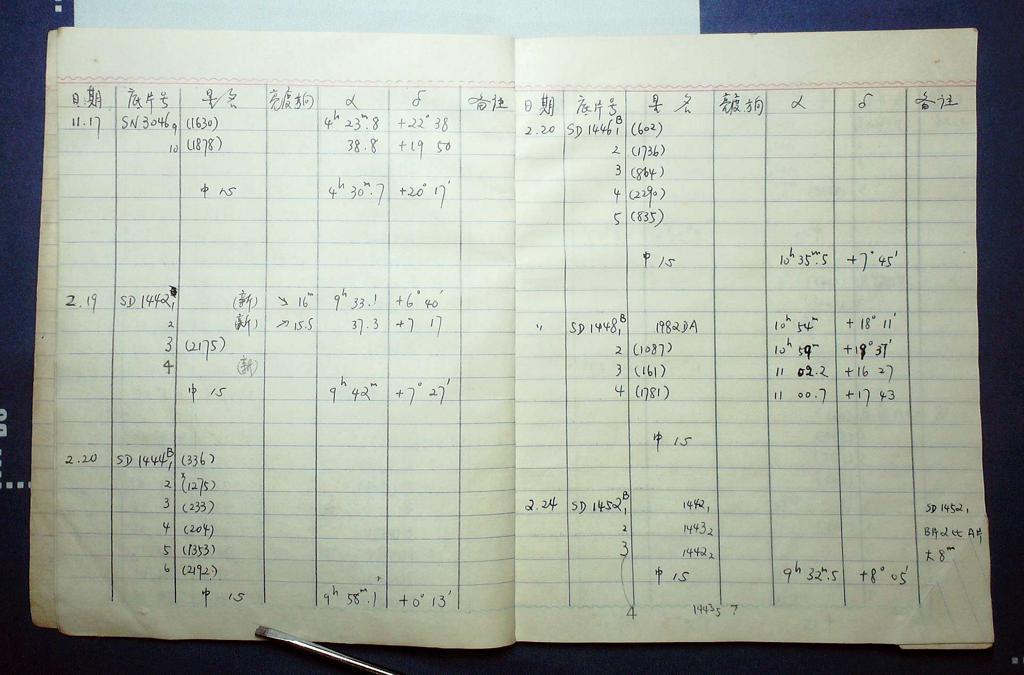 日期 底片号 星名 亮度 α δ 备注
11.17 SN3046 9 (1630) 4ʰ 23ᵐ.8 +22° 38
10 (1878) 38.8 +19 50
中心 4ʰ 30ᵐ.7 +20° 17′
2.19 SD1442 1 (新) ↘ 16ᵐ 9ʰ 33.1 +6° 40′
2 (新) ↗15.5 37.3 +7 17
3 (2175)
4 (新)
中心 9ʰ 42ᵐ +7° 27′
2.20 SD1444ᴮ 1 (336)
2 (1275)
3 (233)
4 (204)
5 (1353)
6 (2192)
中心 9ʰ 58ᵐ.1 +0° 13′
日期 底片号 星名 亮度 α δ 备注
2.20 SD1446ᴮ 1 (602)
2 (1736)
3 (864)
4 (2290)
5 (835)
中心 10ʰ 35ᵐ.5 +7° 45′
" SD1448ᴮ 1 1982DA 10ʰ 54ᵐ +18° 11′
2 (1087) 10ʰ 59ᵐ
3 (161) 11 02.2 +16 27
4 (1781) 11 00.7 +17 43
中心
2.24 SD1452ᴮ 1 1442₁ SD1452₁
2 1443₂ B片α比A片
3 1442₂ 大8ᵐ
中心 9ʰ 32ᵐ.5 +8° 05′
4 1443₅ ?